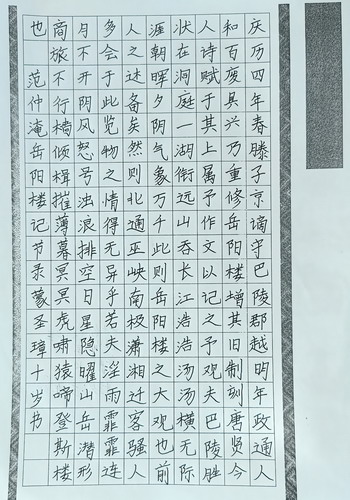 庆历四年春滕子京谪守巴陵郡越明年政通人
和百废具兴乃重修岳阳楼增其旧制刻唐贤今
人诗赋于其上属予作文以记之予观夫巴陵胜
状在洞庭一湖衔远山吞长江浩浩汤汤横无际
涯朝晖夕阴气象万千此则岳阳楼之大观也前
人之述备矣然则北通巫峡南极潇湘迁客骚人
多会于此览物之情得无异乎若夫淫雨霏霏连
月不开阴风怒号浊浪排空日星隐曜山岳潜形
商旅不行樯倾楫摧薄暮冥冥虎啸猿啼登斯楼
也 范仲淹岳阳楼记节录蒙圣璋十岁书